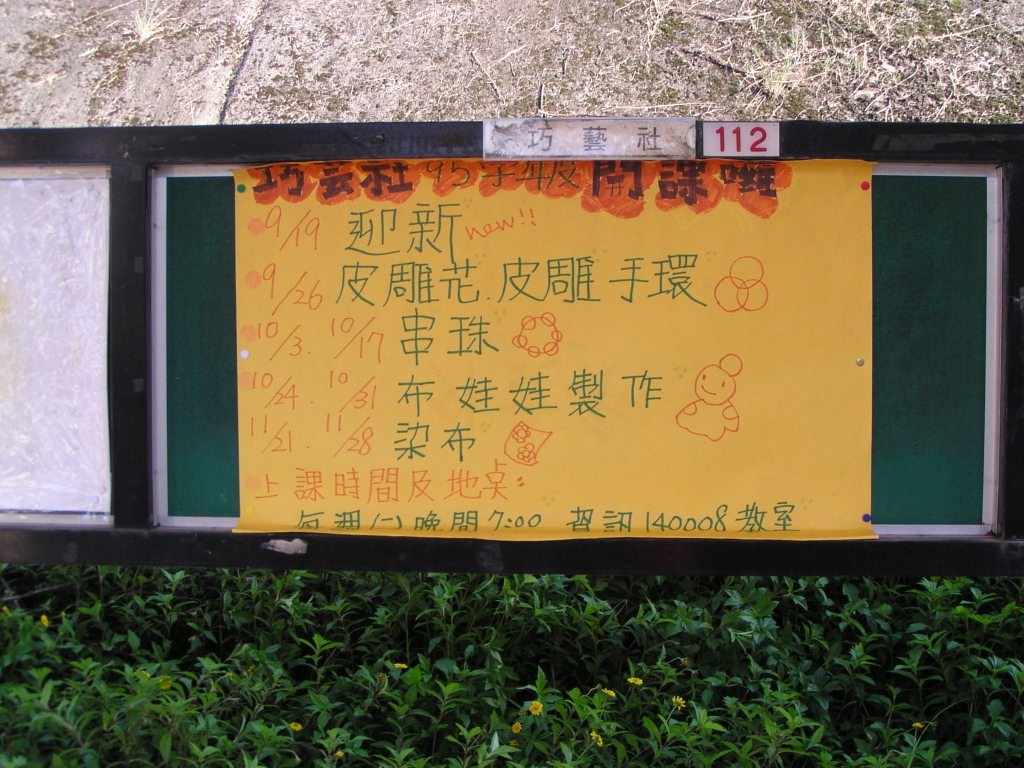 巧藝社 112
巧芸社 95學年度 開課囉
9/19 迎新 new!!
9/26 皮雕花.皮雕手環
10/3. 10/17 串珠
10/24. 10/31 布娃娃製作
11/21. 11/28 染布
上課時間及地點:
每週(二)晚間7:00 資訊140008教室